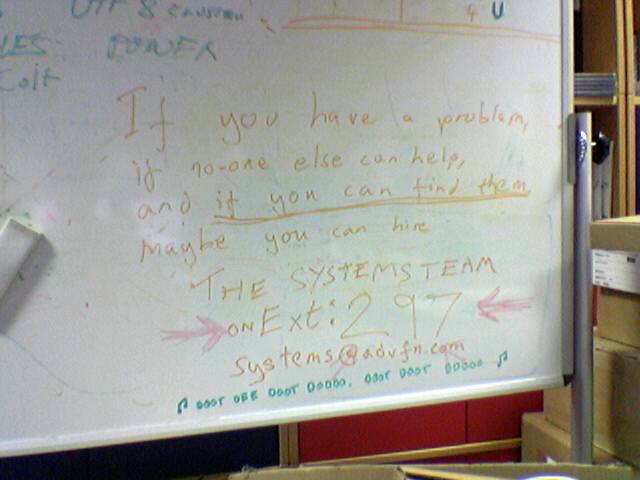 UTF 8
POWER
4 U
If you have a problem,
if no-one else can help,
and if you can find them,
maybe you can hire
THE SYSTEMS TEAM
ON Ext: 297
systems@advfn.com
♫ DOOT DEE DOOT DOOOO, DOOT DOOT DOOOO ♫